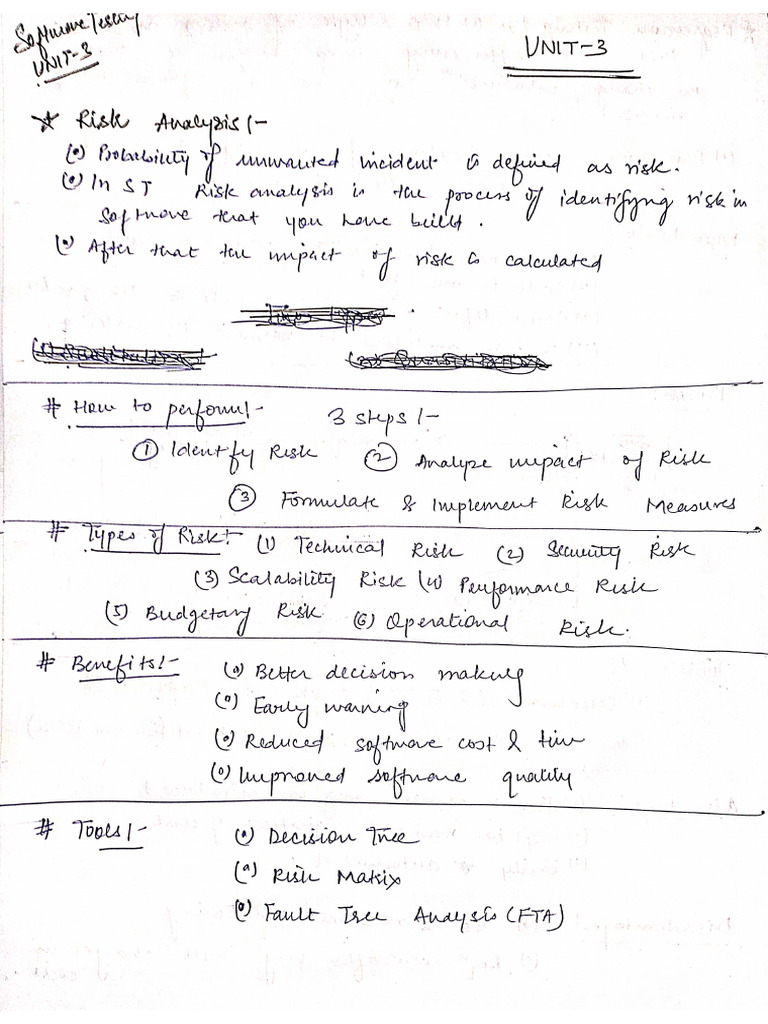 Software Testing
UNIT-3
UNIT-3
☆ Risk Analysis:-
(•) Probability of unwanted incident is defined as risk.
(•) In ST Risk analysis is the process of identifying risk in
software that you have built.
(•) After that the impact of risk is calculated
# How to perform!- 3 steps!-
① Identify Risk ② Analyze impact of Risk
③ Formulate & Implement Risk Measures
# Types of Risk:- (1) Technical Risk (2) Security Risk
(3) Scalability Risk (4) Performance Risk
(5) Budgetary Risk (6) Operational Risk.
# Benefits!- (•) Better decision making
(•) Early warning
(•) Reduced software cost & time
(•) Improved software quality
# Tools!- (•) Decision Tree
(•) Risk Matrix
(•) Fault Tree Analysis (FTA)